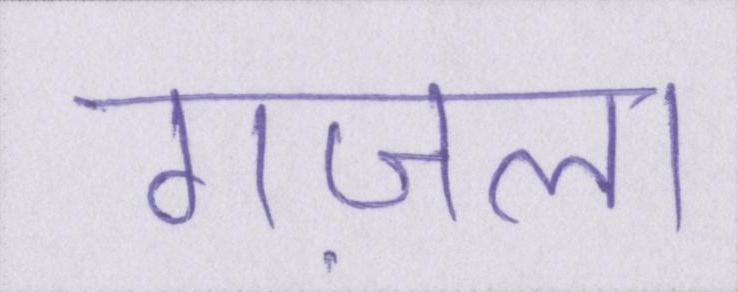 गज़ला